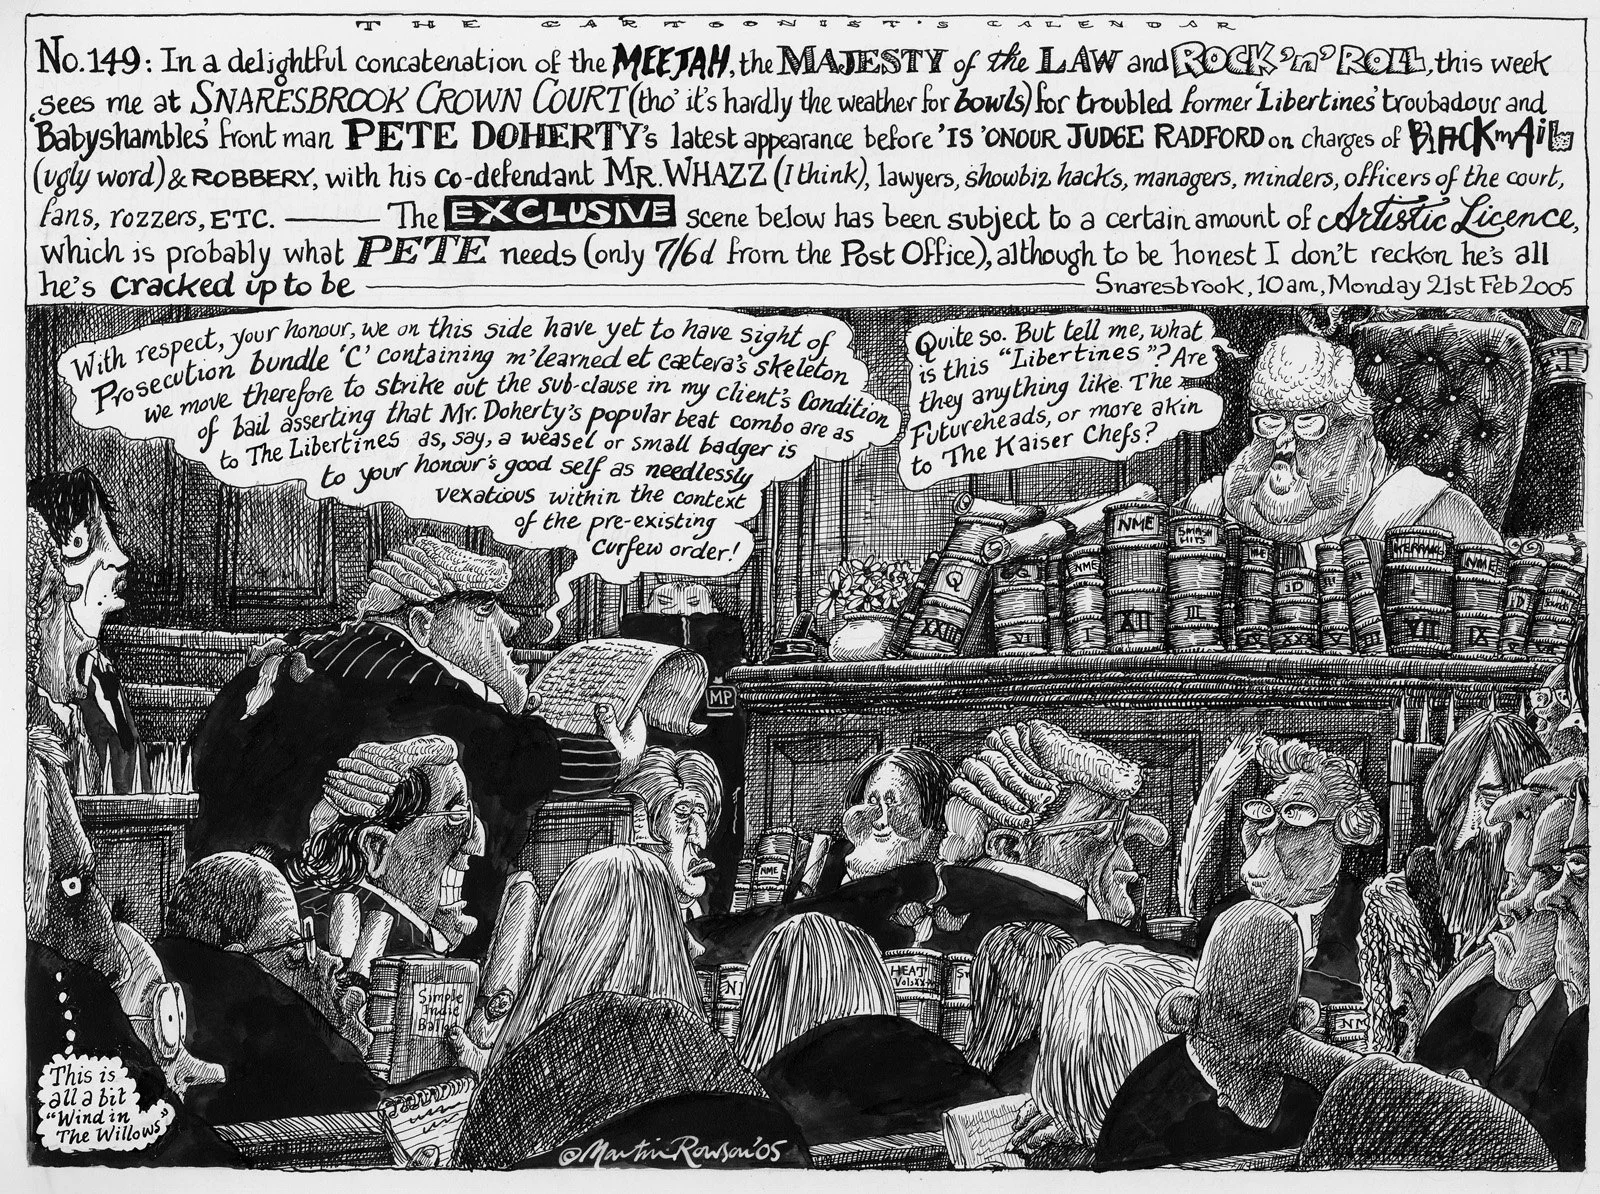 THE CARTOONIST'S CALENDAR
No.149: In a delightful concatenation of the MEEJAH, the MAJESTY of the LAW and ROCK 'n' ROLL, this week
sees me at SNARESBROOK CROWN COURT (tho' it's hardly the weather for bowls) for troubled former 'Libertines' troubadour and
'Babyshambles' front man PETE DOHERTY's latest appearance before 'IS 'ONOUR JUDGE RADFORD on charges of BLACKmAiL
(ugly word) & ROBBERY, with his co-defendant MR. WHAZZ (I think), lawyers, showbiz hacks, managers, minders, officers of the court,
fans, rozzers, ETC. — The EXCLUSIVE scene below has been subject to a certain amount of Artistic Licence,
which is probably what PETE needs (only 7/6d from the Post Office), although to be honest I don't reckon he's all
he's cracked up to be — Snaresbrook, 10am, Monday 21st Feb 2005
With respect, your honour, we on this side have yet to have sight of
Prosecution bundle 'C' containing m'learned et cætera's skeleton
we move therefore to strike out the sub-clause in my client's Condition
of bail asserting that Mr. Doherty's popular beat combo are as
to The Libertines as, say, a weasel or small badger is
to your honour's good self as needlessly
vexatious within the context
of the pre-existing
curfew order!
Quite so. But tell me, what
is this "Libertines"? Are
they anything like The
Futureheads, or more akin
to The Kaiser Chefs?
Q
XXIII
VI
NME
I
NME
XII
SMASH
HITS
II
iD
XXX
V
KERRANG
VII
NME
IX
iD
MP
NME
HEAT
Vol.XX
Simple
Indie
NM
This is
all a bit
"Wind in
The Willows"
© Martin Rowson '05